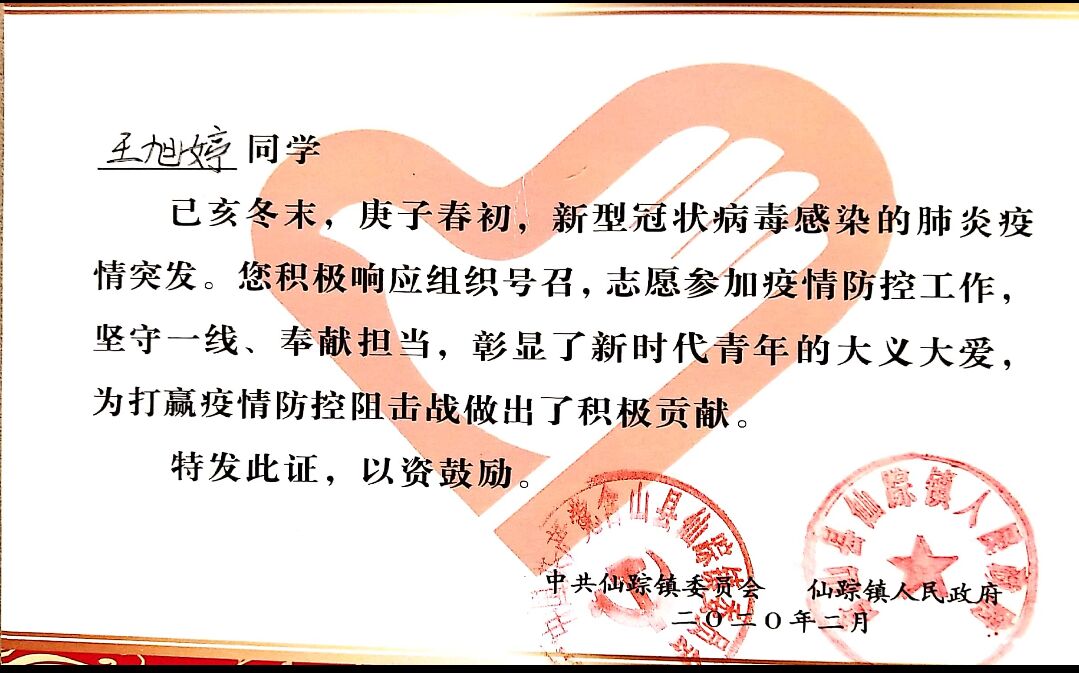 王旭婷同学
己亥冬末，庚子春初，新型冠状病毒感染的肺炎疫
情突发。您积极响应组织号召，志愿参加疫情防控工作，
坚守一线、奉献担当，彰显了新时代青年的大义大爱，
为打赢疫情防控阻击战做出了积极贡献。
特发此证，以资鼓励。
中共仙踪镇委员会 仙踪镇人民政府
二〇二〇年二月
山县仙踪镇委员
县仙踪镇人民政府